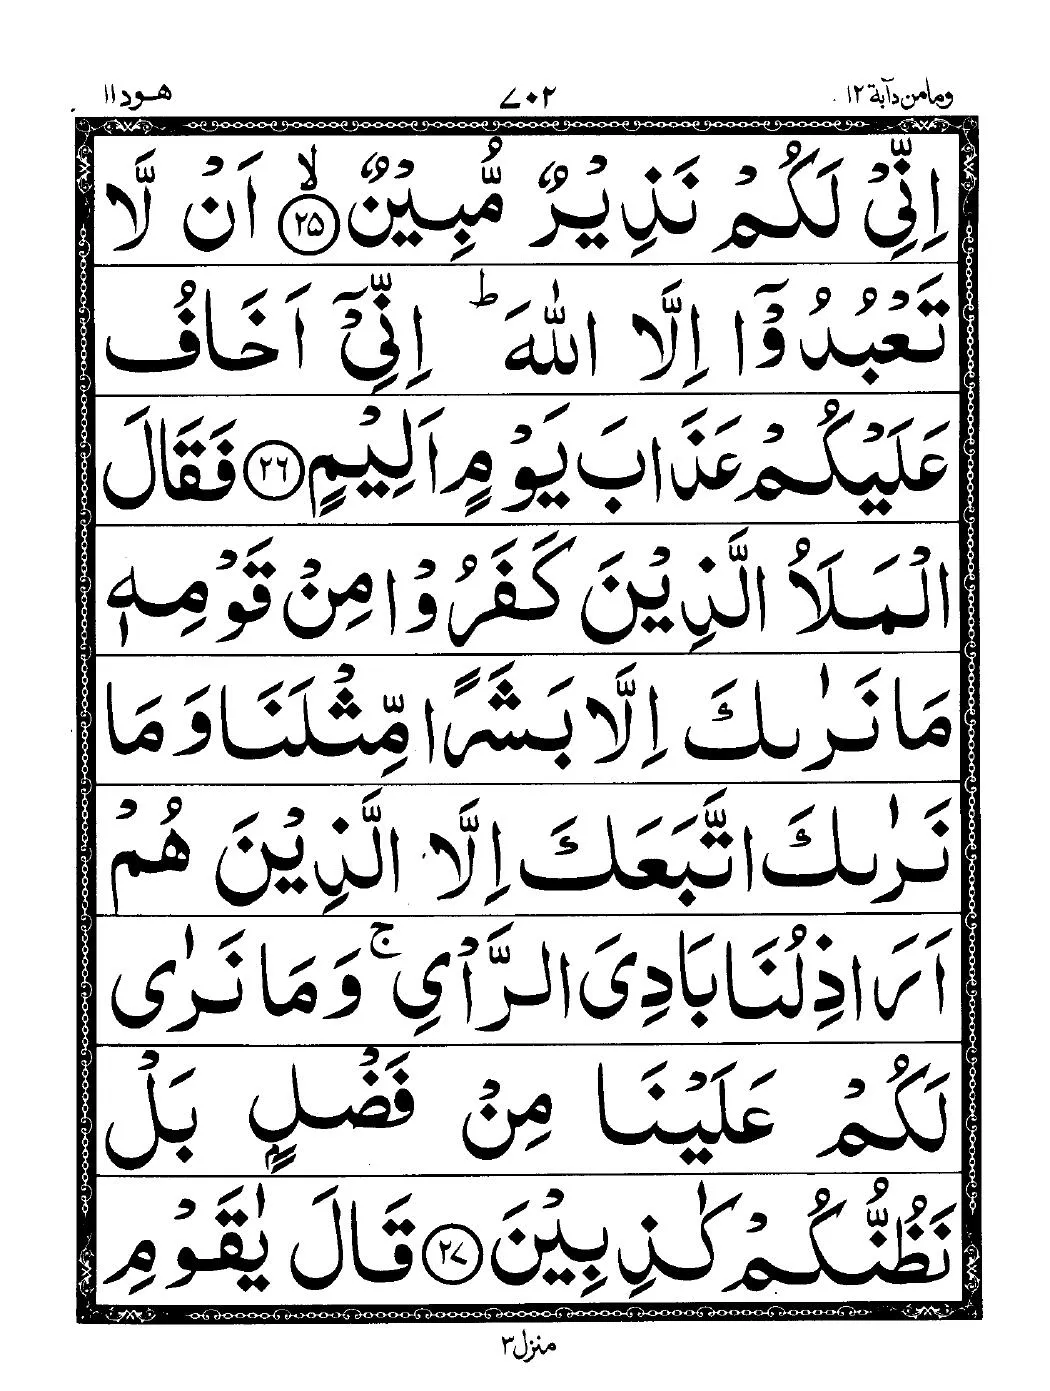 وما من دآبة ١٢
٧٠٢
هود ١١
اِنِّیْ لَكُمْ نَذِیْرٌ مُّبِیْنٌ ۙ ﴿۲۵﴾ اَنْ لَّا
تَعْبُدُوْۤا اِلَّا اللّٰهَ ؕ اِنِّیْۤ اَخَافُ
عَلَیْكُمْ عَذَابَ یَوْمٍ اَلِیْمٍ ﴿۲۶﴾ فَقَالَ
الْمَلَاُ الَّذِیْنَ كَفَرُوْا مِنْ قَوْمِهٖ
مَا نَرٰىكَ اِلَّا بَشَرًا مِّثْلَنَا وَ مَا
نَرٰىكَ اتَّبَعَكَ اِلَّا الَّذِیْنَ هُمْ
اَرَاذِلُنَا بَادِیَ الرَّاْیِ ۚ وَ مَا نَرٰی
لَكُمْ عَلَیْنَا مِنْ فَضْلٍۭ بَلْ
نَظُنُّكُمْ كٰذِبِیْنَ ﴿۲۷﴾ قَالَ یٰقَوْمِ
منزل ٣